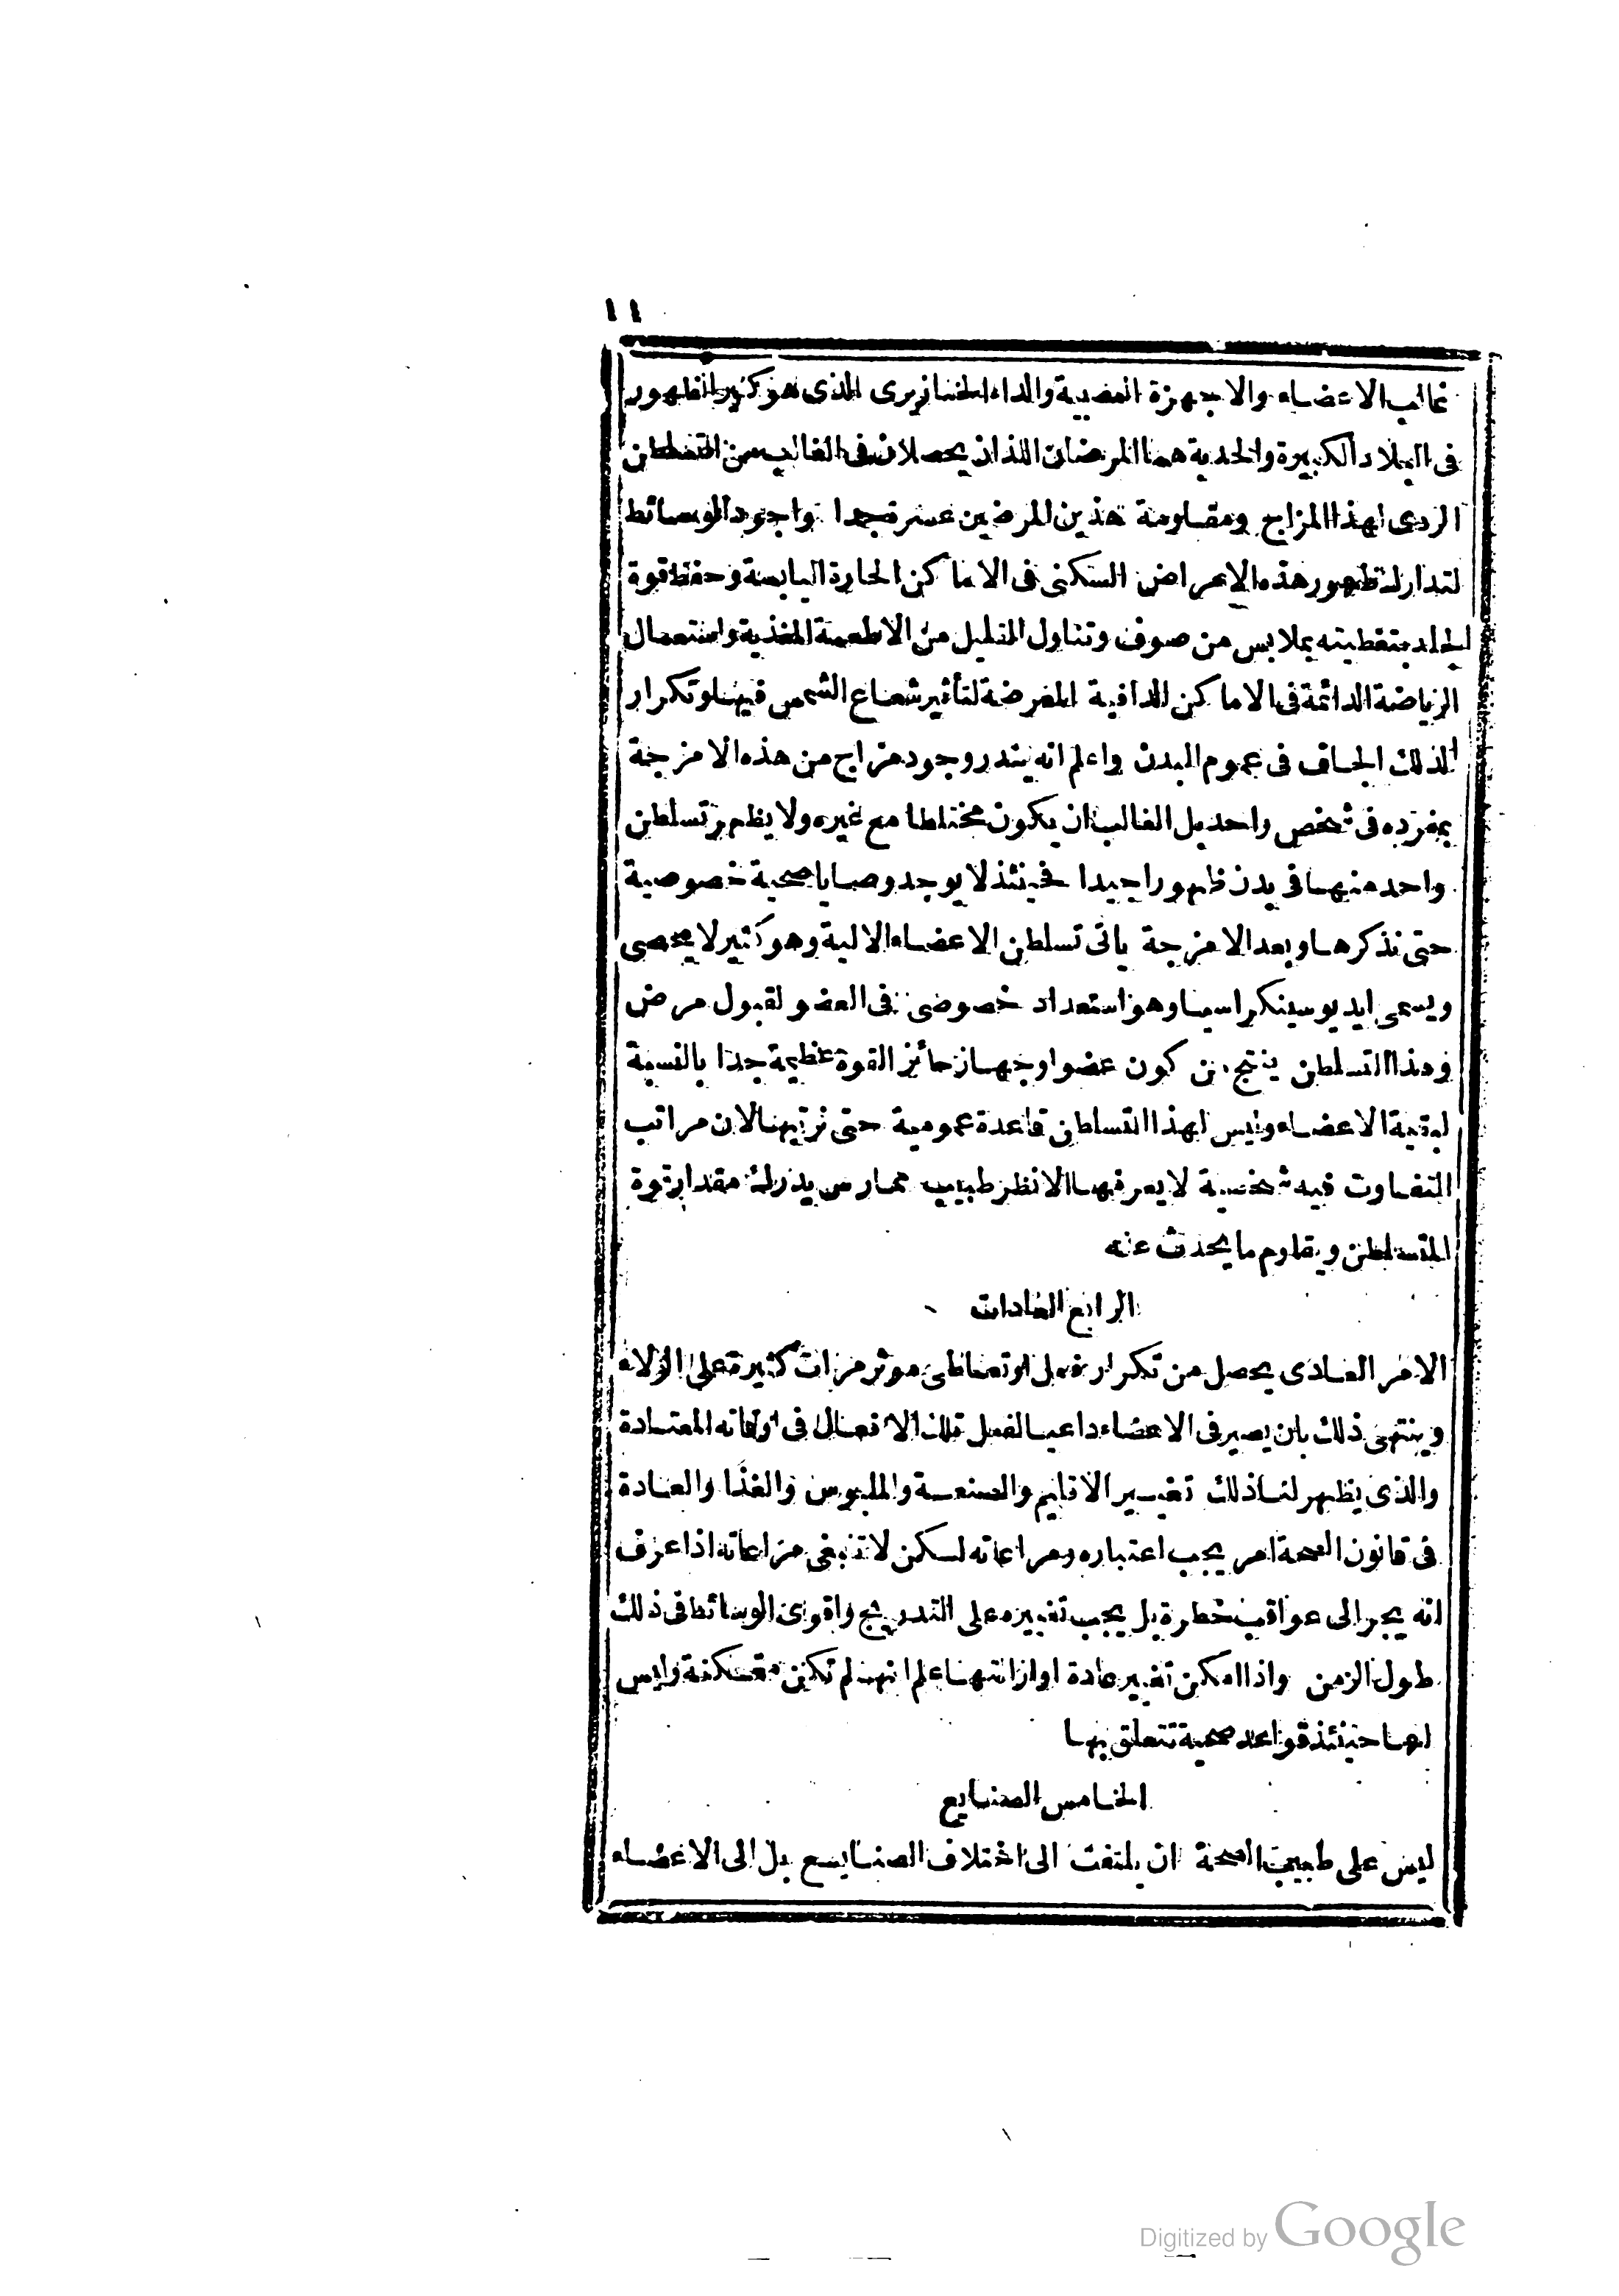 ١١
غالب الاعضاء والاجهزة العصبية والداء الخنازيرى الذى هو كثير الظهور
فى البلاد الكبيرة والحدبة هما المرضان اللذان يحصلان فى الغالب من التسلطن
الردى لهذا المزاج ومقاومة هذين المرضين عسرة جدا واجود الوسائط
لتدارك ظهور هذه الامراض السكنى فى الاماكن الحارة اليابسة وحفظ قوة
الجلد بتغطيته بملابس من صوف وتناول القليل من الاطعمة المغذية واستعمال
الرياضة الدائمة فى الاماكن الدافية المعرضة لتأثير شعاع الشمس فيها وتكرار
الذلك الجاف فى عموم البدن واعلم انه يندر وجود مزاج من هذه الامزجة
بمفرده فى شخص واحد بل الغالب ان يكون مختلطا مع غيره ولا يظهر تسلطن
واحد منها فى بدن ظهورا جيدا فحينئذ لا يوجد وصايا صحية خصوصية
حتى نذكرها وبعد الامزجة ياتى تسلطن الاعضاء الالية وهو كثير لا يحصى
ويسمى ايديوسينكراسيا وهو استعداد خصوصى فى العضو لقبول مرض
وهذا التسلطن ينتج من كون عضو اوجهاز حائز القوة عظيمة جدا بالنسبة
لبقية الاعضاء وليس لهذا التسلطن قاعدة عمومية حتى نرتبها لان مراتب
التفاوت فيه شخصية لا يعرفها الانظر طبيب ممارس يدرك مقدار قوة
المتسلطن ويقاوم ما يحدث عنه
الرابع العادات
الامر العادى يحصل من تكرار فعل او تعاطى موثر مرات كثيرة على الولاء
وينتهى ذلك بان يصير فى الاعضاء داعيا لفعل تلك الافعال فى اوقاته المعتادة
والذى يظهر لنا ذلك تغيير الاقليم والصنعة والملبوس والغذا والعادة
فى قانون الصحة امر يجب اعتباره ومراعاته لكن لا تنبغى مراعاته اذا عرف
انه يجر الى عواقب خطرة بل يجب تغييره على التدريج واقوى الوسائط فى ذلك
طول الزمن واذا امكن تغيير عادة او ازالتها علم انها لم تكن متمكنة وليس
لها حينئذ قواعد صحية تتعلق بها
الخامس الصنايع
ليس على طبيب الصحة ان يلتفت الى اختلاف الصنايع بل الى الاعضاء
Digitized by Google